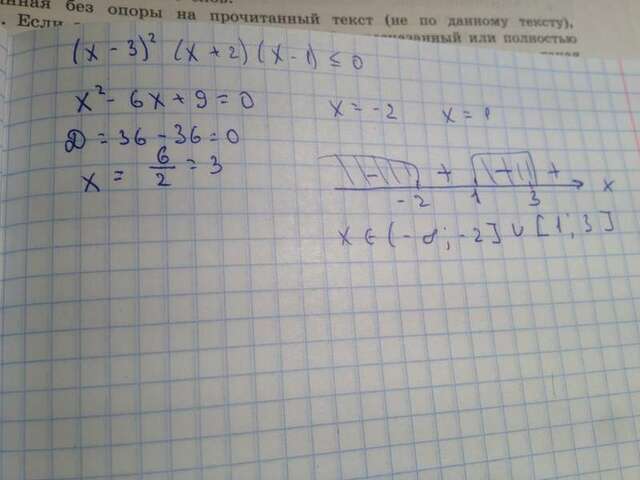 нная без опоры на прочитанный текст (не по данному тексту),
. Если
казанный или полностью
(x - 3)² (x + 2)(x - 1) ≤ 0
x² - 6x + 9 = 0 x = -2 x = 1
D = 36 - 36 = 0
x = 6/2 = 3
- + + x
-2 1 3
x ∈ (-∞; -2] ∪ [1; 3]